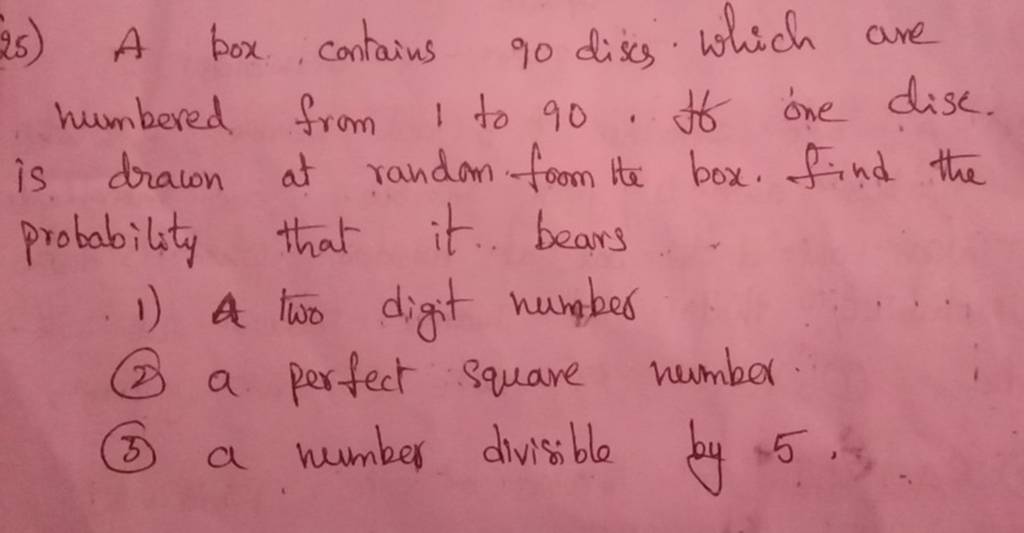 25) A box contains 90 discs. which are
numbered from 1 to 90. If one disc.
is drawn at random from the box. find the
probability that it bears
1) A two digit number
② a perfect square number.
③ a number divisible by 5.